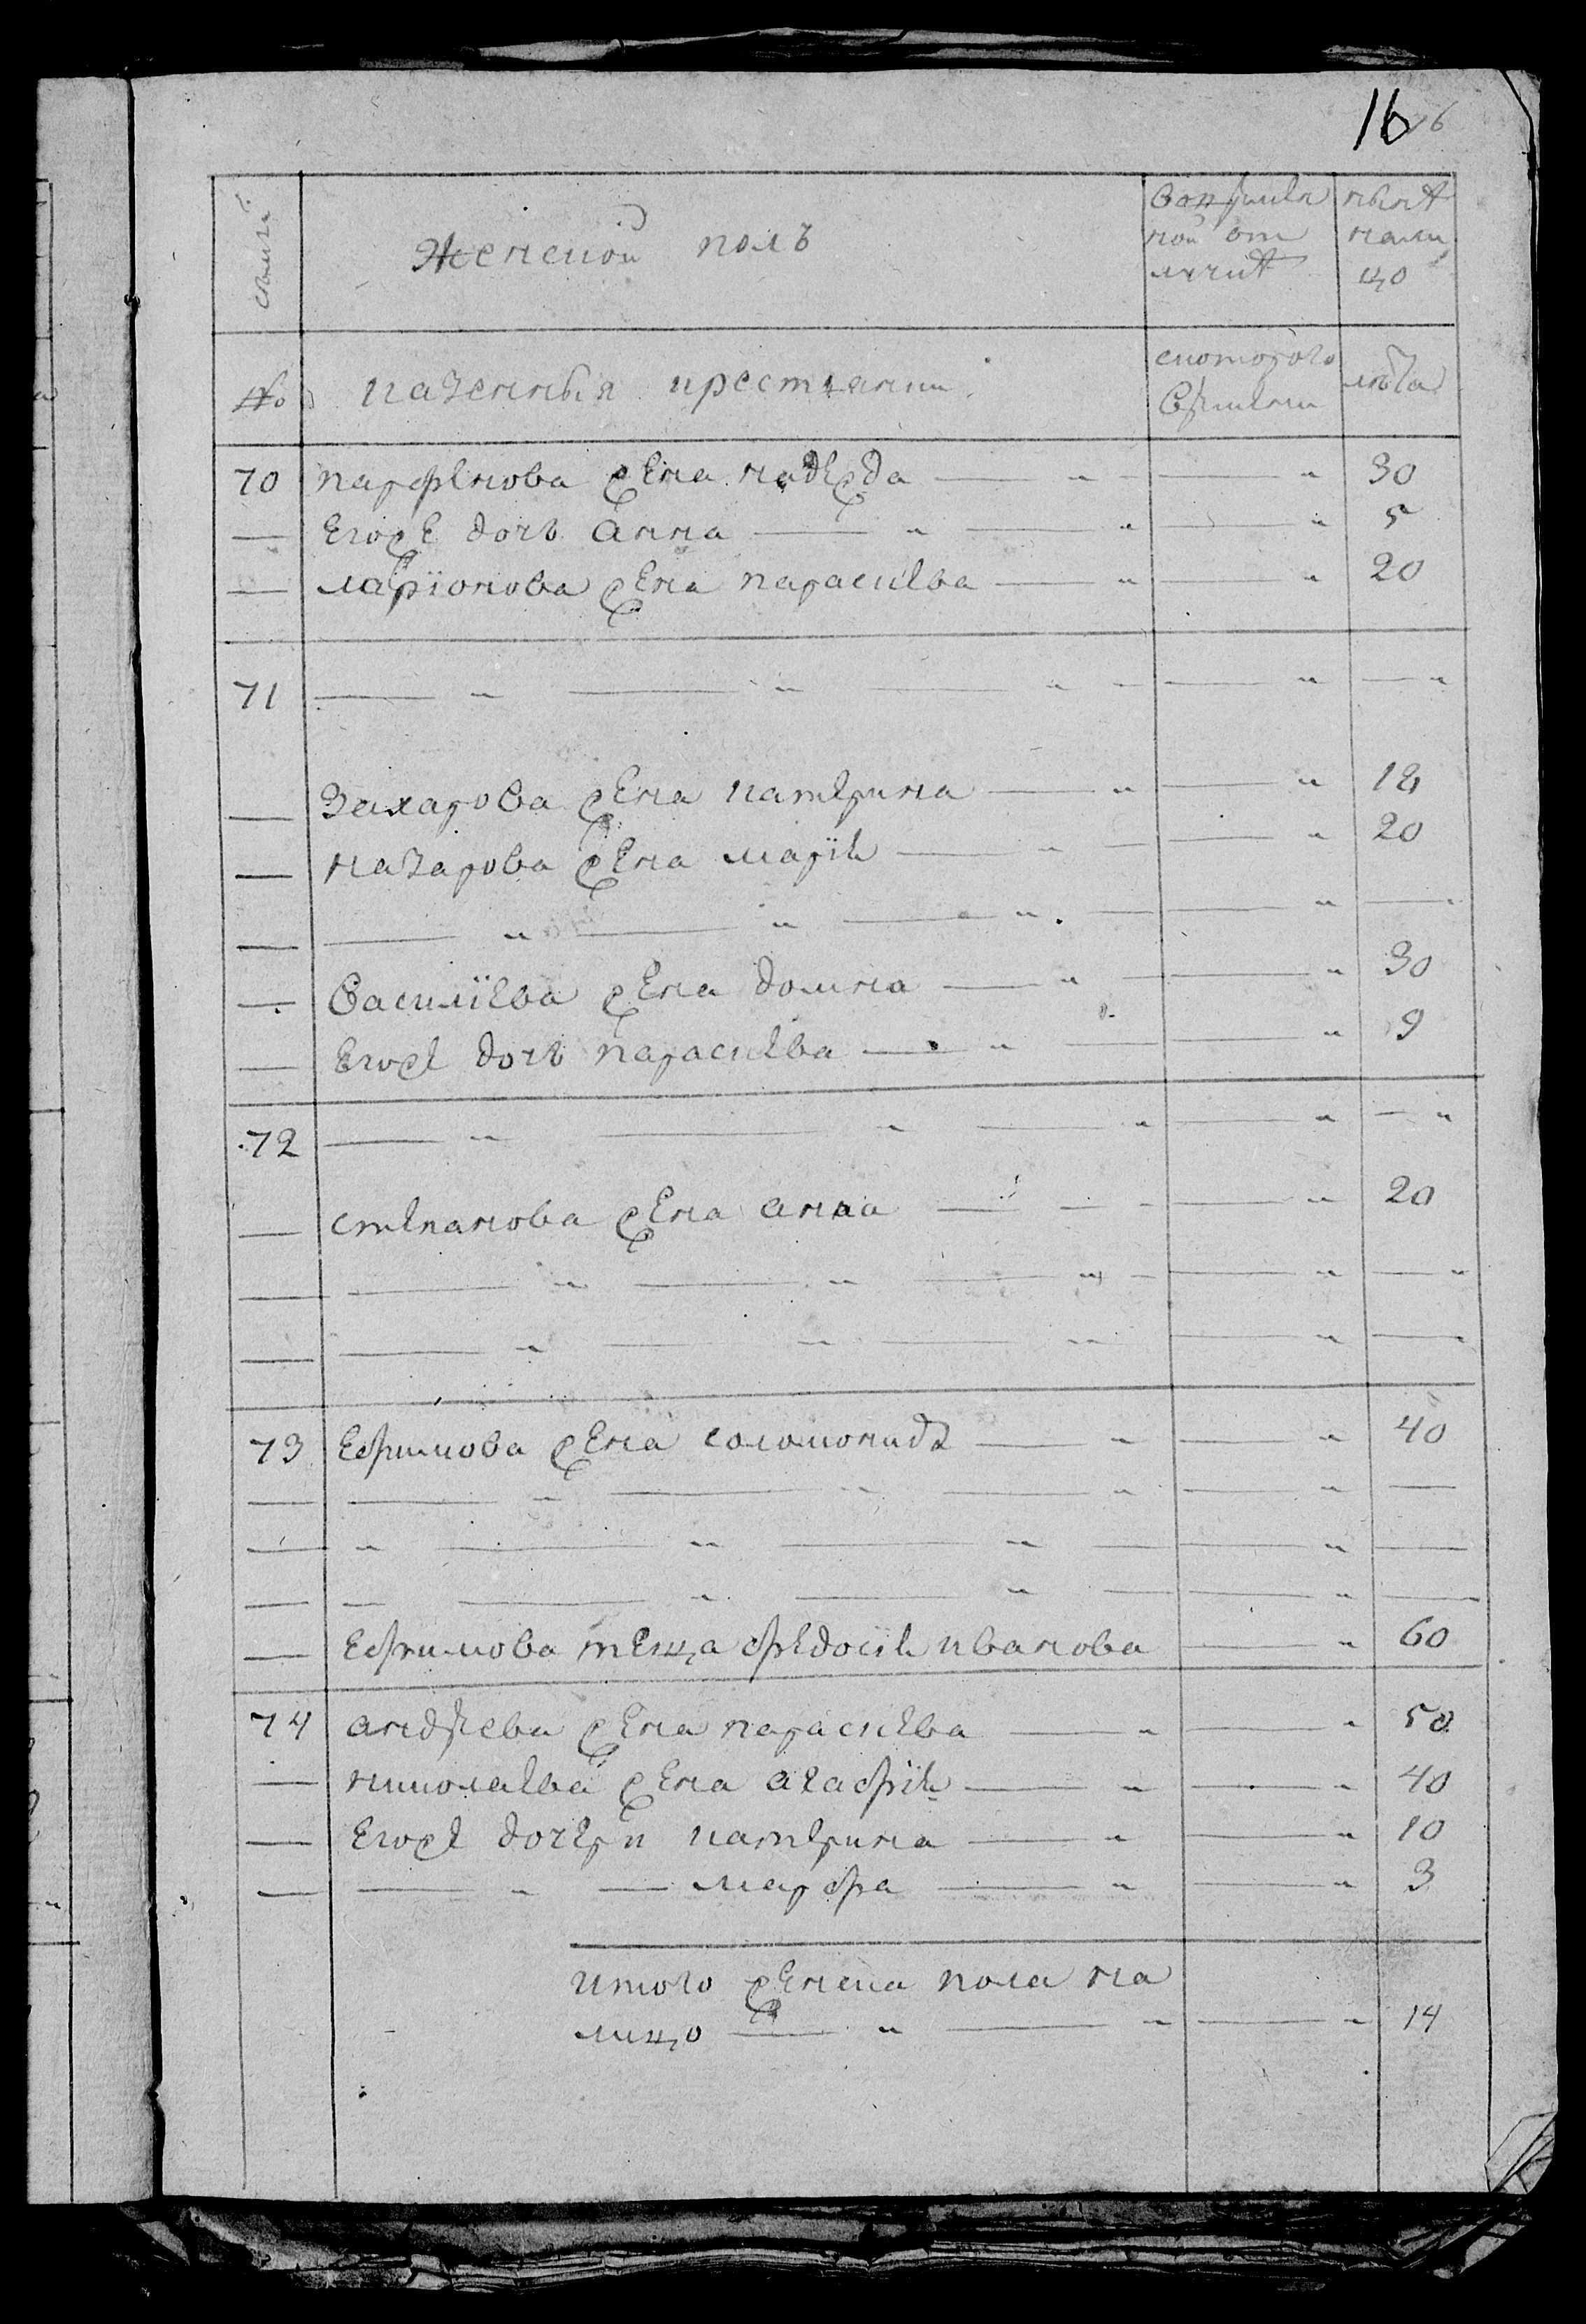 16 16
семьи
Женской полъ
Вовремян
ной от
лучкѣ
ныне
нали
цо
№
казенныя крестьянки
скоторого
Времяни
лѣта
70 парфенова жена надежда — „ — „ 30
— Егоже дочь анна — „ — „ — „ 5
— ларїонова жена парасковья — „ — „ 20
71 — „ — „ — „ — — „ — „
— Захарова жена катерина — „ — „ 18
— назарова жена марїя — „ — — „ 20
— — „ — „ — „ — — „ —
— Василїева жена домна — „ — — „ 30
— Егоже дочь парасковья — „ — — „ 9
72 — „ — „ — „ — „ — „
— степанова жена анна — — — — „ 20
— — „ — „ — „ — — „ — „
— — „ — „ — „ — „ —
73 Ефимова жена соломонида — „ — „ 40
— — „ — „ — „ — „ —
— „ — „ — „ — — „ —
— — — „ — „ — — „ —
— Ефимова теща федосїя иванова — „ 60
74 андреева жена парасковья — „ — „ 50
— николаева жена агафїя — „ — „ 40
— Егоже дочери катерина — „ — „ 10
— — „ — марфа — „ — „ 3
Итого женска пола на
лицо — „ — „ — „ 14